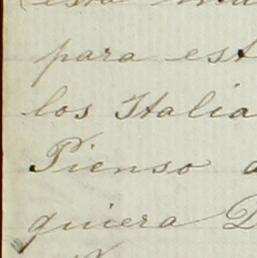 (esta
para est
los Italia
Pienso a
quiera D